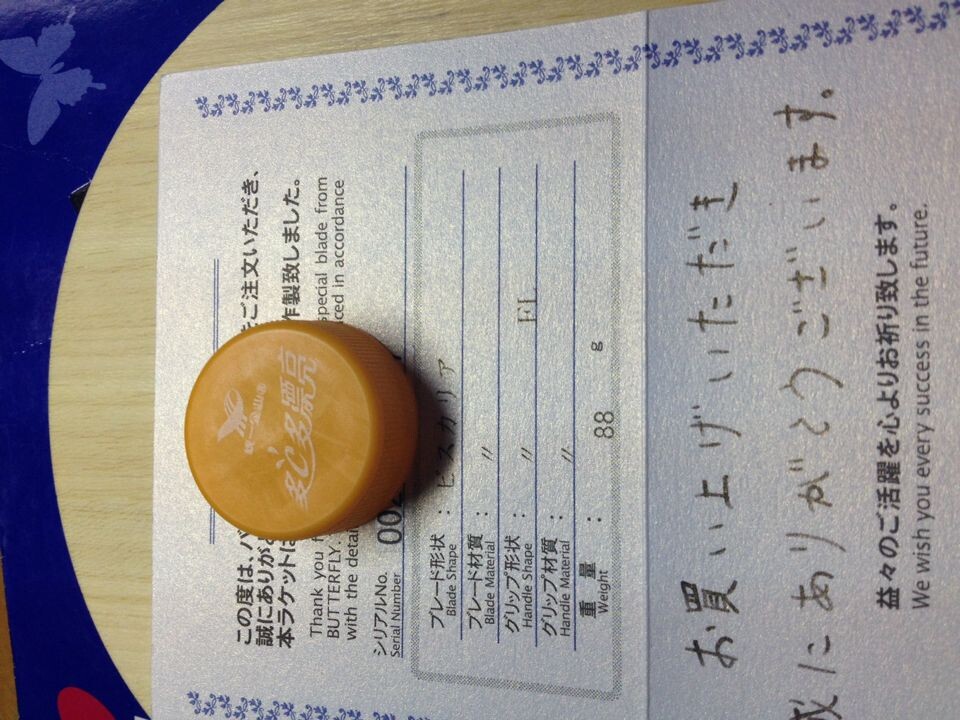 この度は、バ をご注文いただき、
誠にありがと
本ラケットは 作製致しました。
Thank you f special blade from
BUTTERFLY. ced in accordance
with the detai
シリアルNo. 002
Serial Number
ブレード形状 : ビスカリア
Blade Shape
ブレード材質 : 〃
Blade Material
グリップ形状 : 〃 FL
Handle Shape
グリップ材質 : 〃
Handle Material
重量 : 88 g
Weight
お買い上げいただき
誠にありがとうございます。
益々のご活躍を心よりお祈り致します。
We wish you every success in the future.
统一企业
多C多漂亮